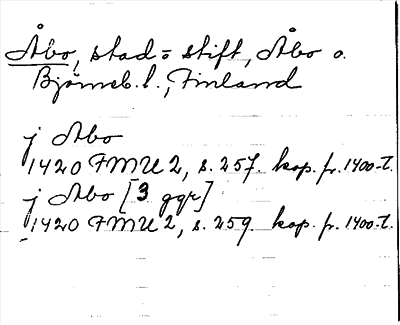 Åbo, stad o stift, Åbo o.
Björneb. l., Finland
j Åbo
1420 FMU 2, s. 257. kop. fr. 1400-t.
j Åbo [3 ggr]
1420 FMU 2, s. 259. kop. fr. 1400-t.